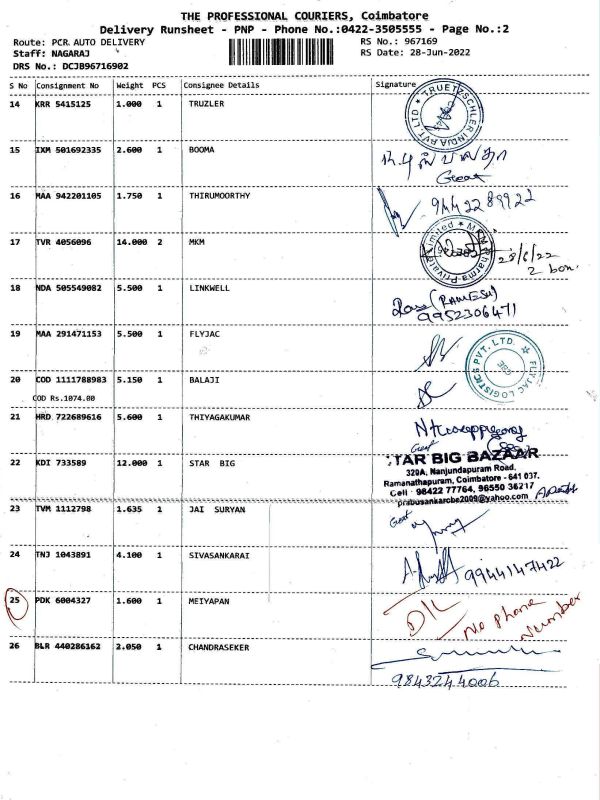 THE PROFESSIONAL COURIERS, Coimbatore
Delivery Runsheet - PNP - Phone No.:0422-3505555 - Page No.:2
Route: PCR AUTO DELIVERY RS No.: 967169
Staff: NAGARAJ RS Date: 28-Jun-2022
DRS No.: DCJB96716902
S No Consignment No Weight PCS Consignee Details Signature
14 KRR 5415125 1.000 1 TRUZLER
TRUETZSCHLER INDIA PVT. LTD
15 IXM 501692335 2.600 1 BOOMA
16 MAA 942201105 1.750 1 THIRUMOORTHY
9442289922
17 TVR 4056096 14.000 2 MKM
MKM Pharma Private Limited
28/6/22
2 box.
18 NDA 505549082 5.500 1 LINKWELL
(RAMESH)
9952306471
19 MAA 291471153 5.500 1 FLYJAC
FLYJAC LOGISTICS PVT. LTD.
20 COD 1111788983 5.150 1 BALAJI
COD Rs.1074.00
21 HRD 722689616 5.600 1 THIYAGAKUMAR
22 KDI 733589 12.000 1 STAR BIG
TAR BIG BAZAAR
320A, Nanjundapuram Road,
Ramanathapuram, Coimbatore - 641 037.
Cell : 98422 77764, 96550 36217
prabusankarcbe2009@yahoo.com
23 TVM 1112798 1.635 1 JAI SURYAN
24 TNJ 1043891 4.100 1 SIVASANKARAI
9944147422
25 PDK 6004327 1.600 1 MEIYAPAN
D/L
No phone
Number
26 BLR 440286162 2.050 1 CHANDRASEKER
9843244006